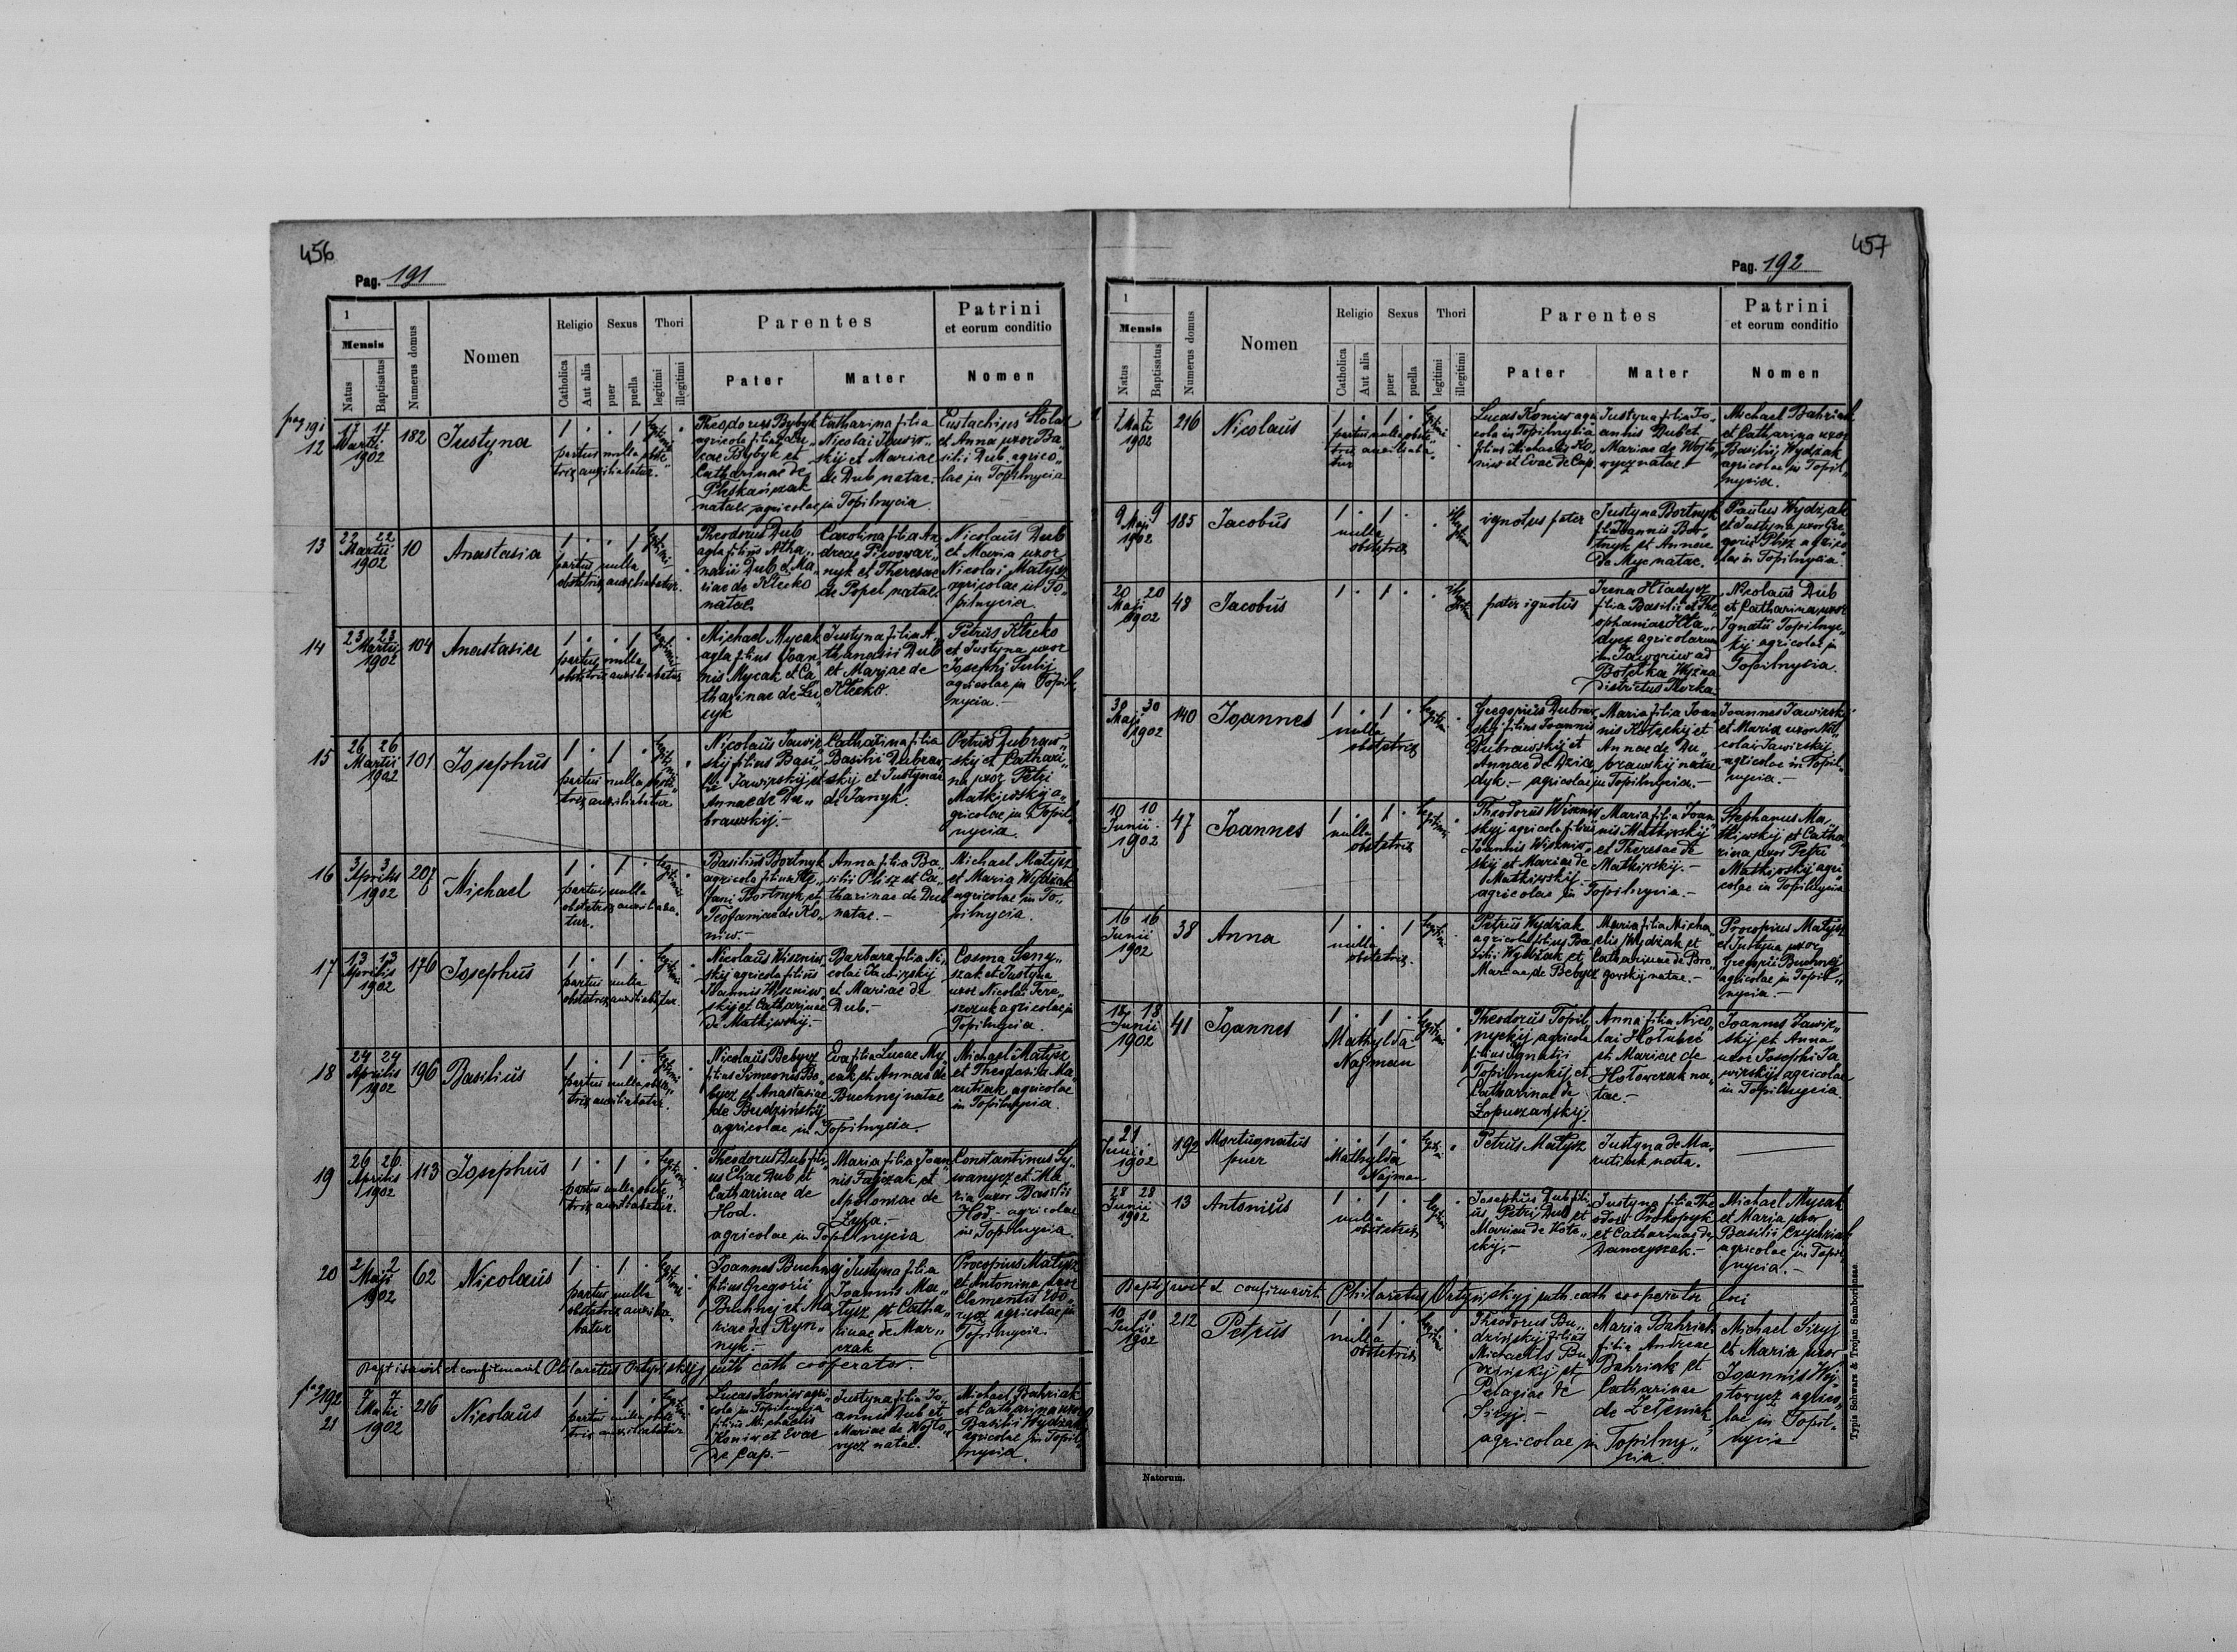 456
Pag. 191
1
Mensis
Natus
Baptisatus
Numerus domus
Nomen
Religio
Catholica
Aut alia
Sexus
puer
puella
Thori
legitimi
illegitimi
Parentes
Pater
Mater
Patrini
et eorum conditio
Nomen
pag 191
12
17 17
Martii
1902
182
Justyna
1 . . 1
partus nulla obste„
trix auxiliabatur.
Theodorus Bybyk
agricola filius Lu„
cae Bybyk et
Catharinae de
Pleskańczak
natae agricolae in Topilnycia.
Catharina filia
Nicolai
skij et Mariae
de Dub natae.
Eustachius Stolar
et Anna uxor Ba„
silii Dub agrico„
lae in Topilnycia
13
22 22
Martii
1902
10
Anastasia
1 . . 1
partus nulla
obstetrix auxiliabatur.
Theodorus Dub
agla filius Atha„
nasii Dub et Ma„
riae de Klecko
natae
Carolina filia An„
dreae Piwowar„
nyk et Theresae
de Popel natae
Nicolaus Dub
et Maria uxor
Nicolai Matysz
agricolae in To„
pilnycia
14
23 23
Martii
1902
104
Anastasia
1 . . 1
partus nulla
obstetrix auxiliabatur
Michael Mycak
agla filius Joan„
nis Mycak et Ca„
tharinae de Lu„
cyk
Justyna filia A„
thanasii Dub
et Mariae de
Klecko.
Petrus Klecko
et Justyna uxor
Josephi Pulij
agricolae in Topil„
nycia.-
15
26 26
Martii
1902
101
Josephus
1 . 1 .
partus nulla obste„
trix auxiliabatur
Nicolaus Jawir„
skij filius Basi„
lii Jawirskij et
Annae de Du„
brawskij.-
Catharina filia
Basilii Dubraw„
skij et Justynae
de Janyk.
Petrus Dubraw„
skij et Cathari„
na uxor Petri
Matkiwskij a„
gricolae in Topil„
nycia.
16
3 3
Aprilis
1902
207
Michael
1 . 1 .
partus nulla
obstetrix auxiliaba„
tur.
Basilius Bortnyk
agricola filius Ste„
fani Bortnyk et
Teofaniae de Ko„
niw.-
Anna filia Ba„
silii Plisz et Ca„
tharinae de Dub
natae.-
Michael Matysz
et Maria Wydżak
agricolae in To„
pilnycia.
17
13 13
Aprilis
1902
176
Josephus
1 . 1 .
partus nulla
obstetrix auxiliabatur.
Nicolaus Wiszniw„
skij agricola filius
Joannis Wiszniw„
skij et Catharinae
de Matkiwskij.-
Barbara filia Ni„
colai Jawirskij
et Mariae de
Dub.-
Cosma Seny„
szak et Justyna
uxor Nicolai Tere„
szczuk agricolae in
Topilnycia.
18
24 24
Aprilis
1902
196
Basilius
1 . 1 .
partus nulla obste„
trix auxiliabatur.
Nicolaus Bebycz
filius Simeonis Be„
bycz et Anastasiae
de Budzińskij
agricolae in Topilnycia.
Eva filia Lucae My„
cak et Annae de
Buchnij natae
Michael Matysz
et Theodosia Ma„
rutiak agricolae
in Topilnycia.
19
26 26
Aprilis
1902
113
Josephus
1 . 1 .
partus nulla obste„
trix auxiliabatur.
Theodorus Dub fili„
us Eliae Dub et
Catharinae de
Hod.
agricolae in Topilnycia
Maria filia Joan„
nis Fajczak et
Apoloniae de
Zyla.-
Constantinus Iy„
wanycz et Ma„
ria uxor Basilii
Hod - agricolae
in Topilnycia.
20
2 2
Maji
1902
62
Nicolaus
1 . 1 .
partus nulla
obstetrix auxilia„
batur
Joannes Buchnij
filius Gregorii
Buchnij et Ma„
riae de Ryn„
nyk.-
Justyna filia
Joannis Ma„
tysz et Catha„
rinae de Mar„
czak
Procopius Matysz
et Antonina uxor
Clementis
agricolae in
Topilnycia.-
Baptisavit et confirmavit Philaretus Ortyńskyj ruth cath cooperator.
pag 192
21
7 7
Maji
1902
216
Nicolaus
1 . 1 .
partus nulla obste„
trix auxiliabatur
Lucas Koniw agri„
cola in Topilnycia
filius Michaelis
Koniw et Evae
de Cap.-
Justyna filia Jo„
annis Dub et
Mariae de Wojto„
wycz natae.
Michael Bahriak
et Catharina uxor
Basilii Wydżak
agricolae in Topil„
nycia.
457
Pag. 192
1
Mensis
Natus
Baptisatus
Numerus domus
Nomen
Religio
Catholica
Aut alia
Sexus
puer
puella
Thori
legitimi
illegitimi
Parentes
Pater
Mater
Patrini
et eorum conditio
Nomen
7 7
Maji
1902
216
Nicolaus
1 . 1 .
partus nulla obste„
trix auxiliaba„
tur
Lucas Koniw agri
cola in Topilnycia
filius Michaelis Ko„
niw et Evae de Cap.
Justyna filia Jo„
annis Dub et
Mariae de Wojto„
wycz natae
Michael Bahriak
et Catharina uxor
Basilij Wydżak
agricolae in Topil„
nycia.
9 9
Maji
1902
185
Jacobus
1 . 1 .
nulla
obstetrix
ignotus pater
Justyna Bortnyk
fi. Joannis Bor„
tnyk et Annae
de Myc natae.
Paulus Wydżak
et Justyna uxor Gre„
gorii Plisz agrico„
lae in Topilnycia.
20 20
Maji
1902
48
Jacobus
1 . 1 .
pater ignotus
Irena Hladycz
filia Basilii et The„
ophaniae Hla„
dycz agricolarum
in Jaworiw ad
Botelka Wyżna
districtus Turka
Nicolaus Dub
et Catharina uxor
Ignatii Topilnyc„
kij agricolae in
Topilnycia.
30 30
Maji
1902
140
Joannes
1 . 1 .
nulla
obstetrix
Gregorius Dubraw„
skij filius Joannis
Dubrawskij et
Annae de Dzia„
dyk.- agricolae in Topilnycia.-
Maria filia Joan
nis Koteckij et
Annae de Du„
brawskij natae
Joannes Jawirskij
et Maria uxor Ni„
colai Jawirskij
agricolae in Topil„
nycia.-
10 10
Junii
1902
47
Joannes
1 . 1 .
nulla
obstetrix
Theodorus Wiszniw„
skyj agricola filius
Joannis Wiszniw„
skij et Mariae de
Matkiwskij.-
agricolae in Topilnycia.-
Maria filia Joan
nis Matkiwskij
et Theresae de
Matkiwskij.-
Stephanus Ma„
tkiwskij et Catha„
rina uxor Petri
Matkiwskij agri„
colae in Topilnycia
16 16
Junii
1902
38
Anna
1 . . 1
nulla
obstetrix.
Petrus Wydżak
agricola filius Ba„
silii Wydżak et
Mariae de Bebycz
Maria filia Micha„
elis Wydżak et
Catharinae de Bro„
gowskij natae.-
Procopius Matysz
et Justyna uxor
Gregorii Buchnij
agricolae in Topil„
nycia.-
18
Junii
1902
41
Joannes
1 . 1 .
Mathylda
Najman
Theodorus Topil„
nyckij agricola
filius Ignatii
Topilnyckij et
Catharinae de
Łopuszańskij.
Anna filia Nico„
lai Hołubec
et Mariae de
Hołowczak na„
tae.-
Joannes Jawir„
skij et Anna
uxor Josephi Ja„
wirskij agricolae
in Topilnycia.
21
Junii
1902
192
Mortuqnatus
puer
. . 1 .
Mathylda
Najman
Petrus Matysz
Justyna de Ma„
rutiak nata.
28 28
Junii
1902
13
Antonius
1 . 1 .
nulla
obstetrix
Josephus Dub fili„
us Petri Dub et
Mariae de Kote„
ckij.-
Justyna filia The„
odori Prokopyk
et Catharinae de
Danczyszak.-
Michael Mycak
et Maria uxor
Basilii
agricolae in Topil„
nycia.-
Baptisavit et confirmavit Philaretus Ortyńskyj ruth. cath cooperator loci
10 10
Julii
1902
212
Petrus
1 . 1 .
nulla
obstetrix
Theodorus Bu„
dzińskij filius
Michaelis Bu„
dzińskij et
Pelagiae de
Siryj.-
agricolae in Topilny„
cia.
Maria Bahriak
filia Andreae
Bahriak et
Catharinae
de Zeleniak
Michael Siryj
et Maria uxor
Joannis Woj„
towycz agrico„
lae in Topil„
nycia
Natorum.
Typis Schwarz & Trojan Samborinense.